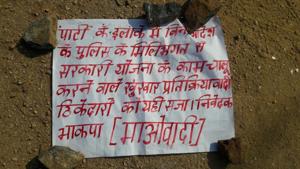 पार्टी के इलाके में बिना आदेश
के पुलिस के मिलिभगत से
सरकारी योजना के काम चालू
करने वाले खुंखार प्रतिक्रियावादी
ठिकेदारों का यही सजा। निवेदक
भाकपा [माओवादी]